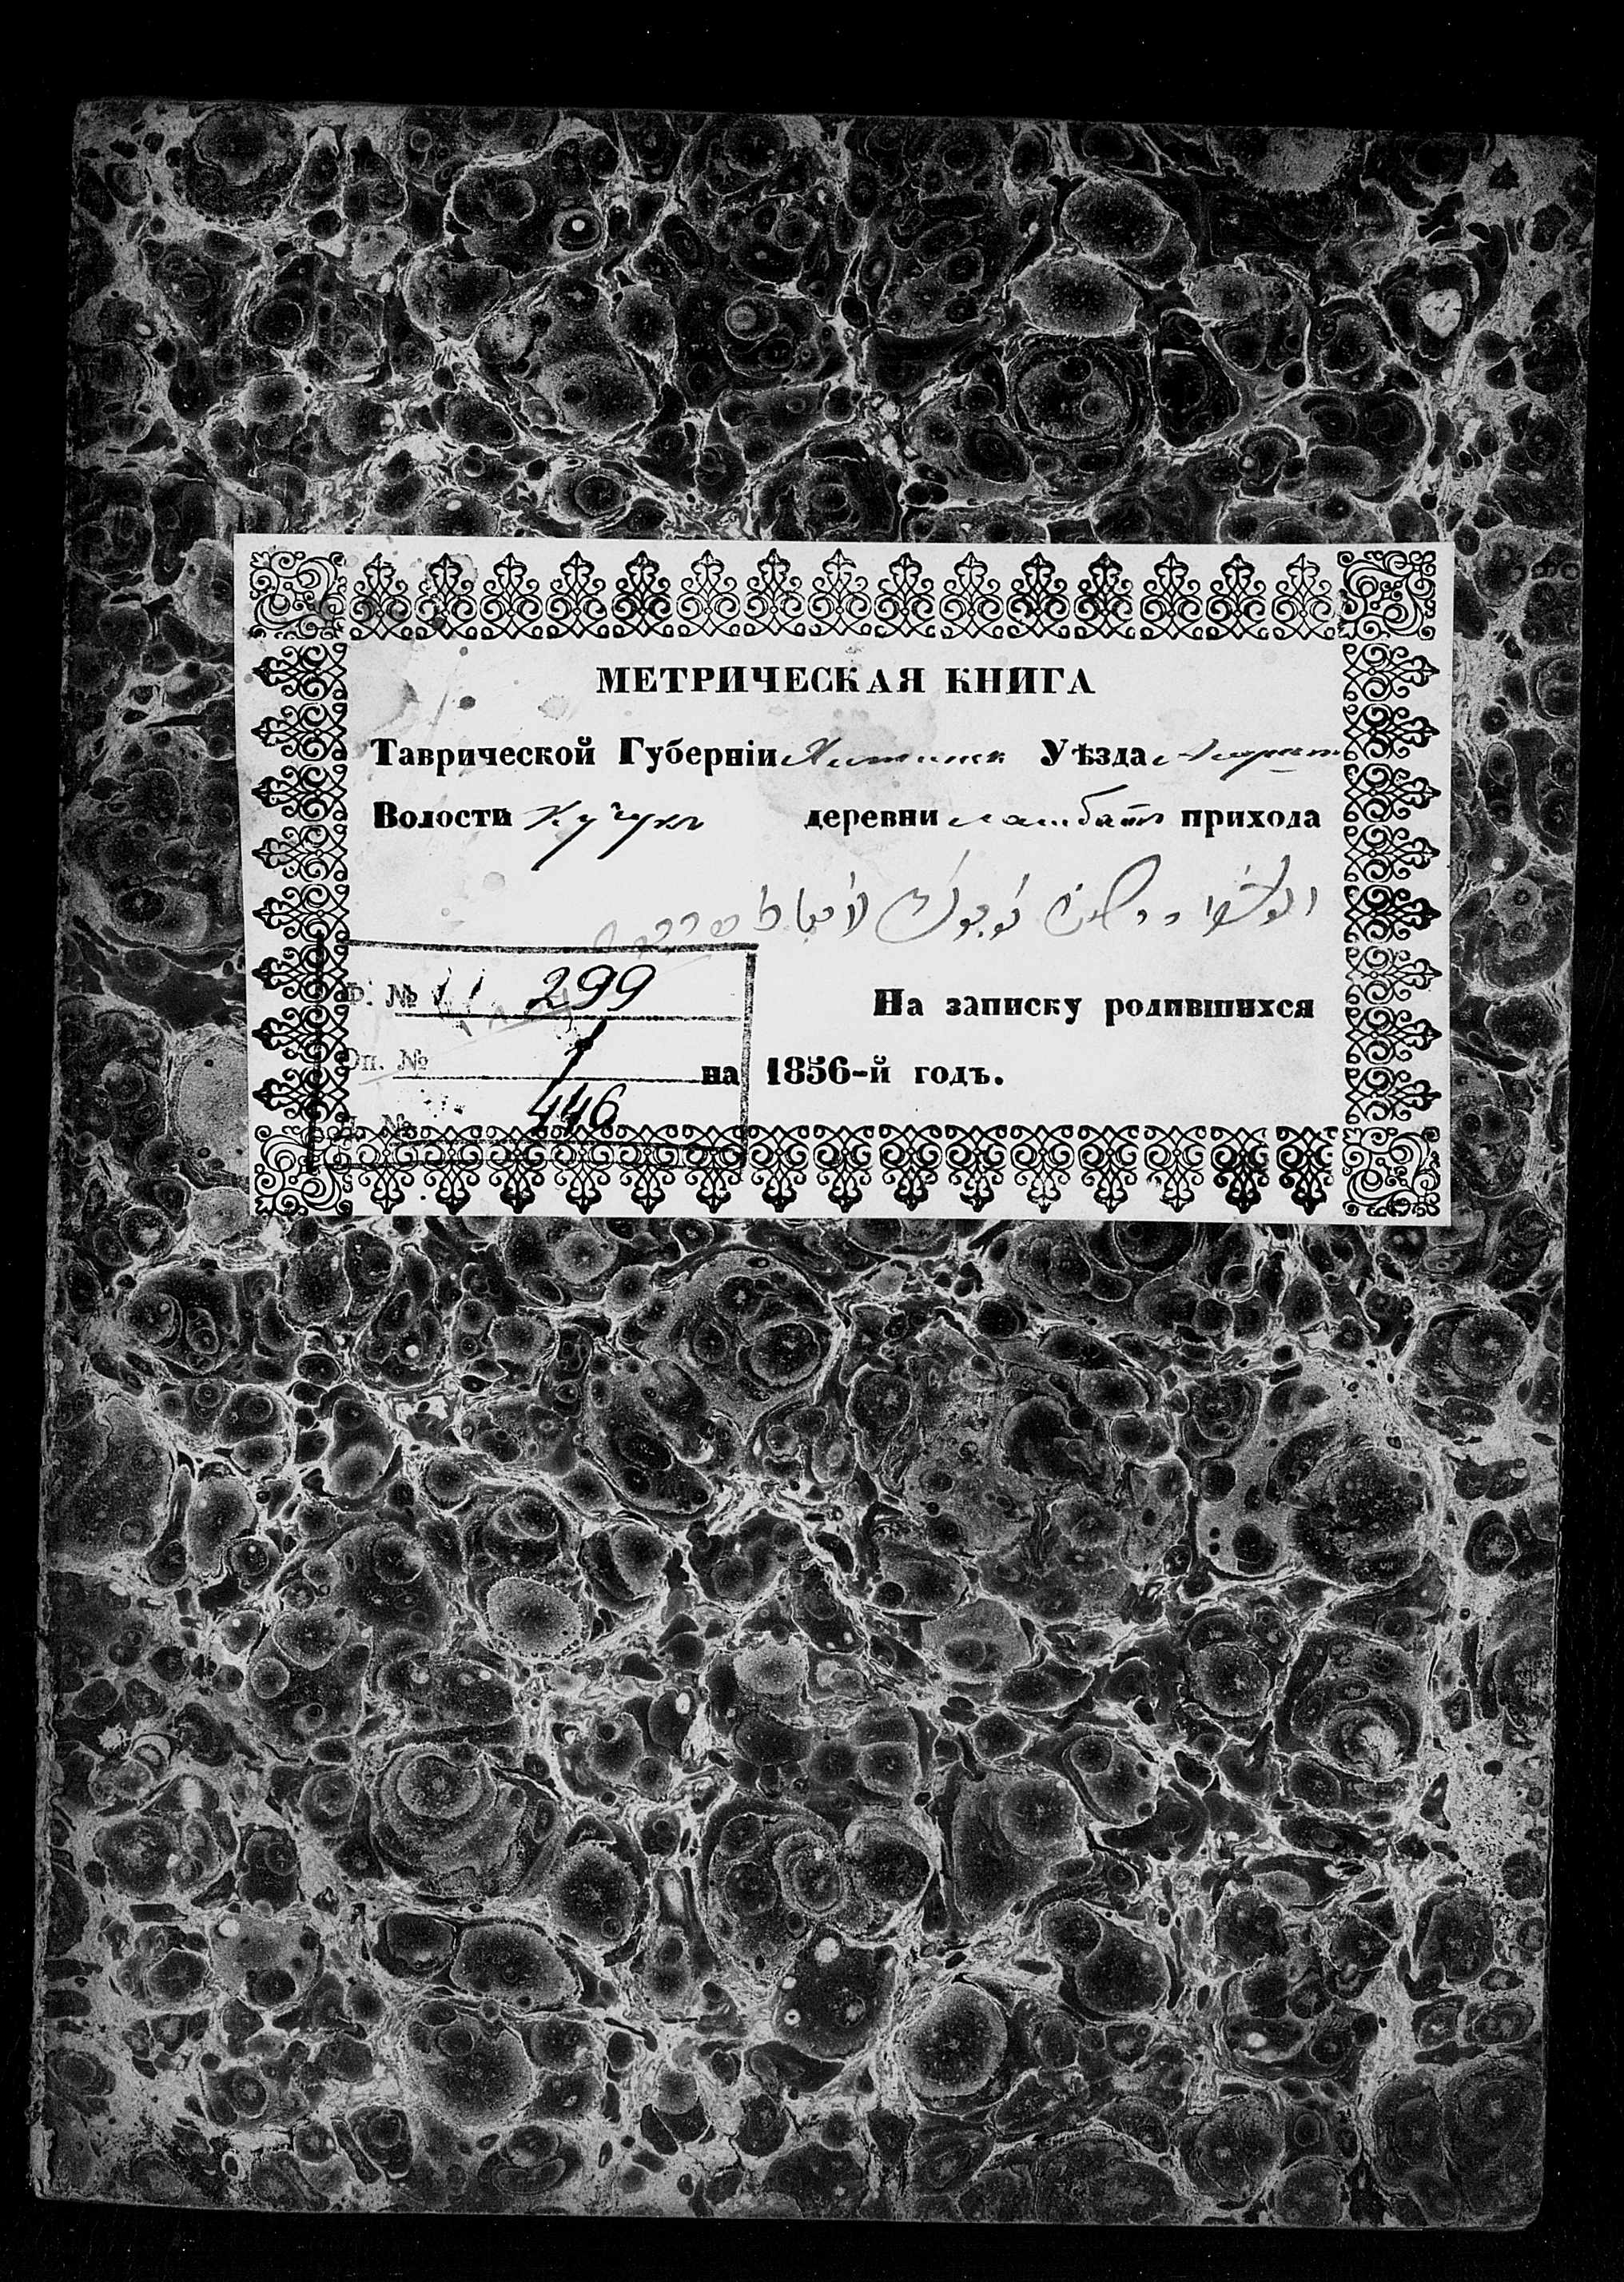 МЕТРИЧЕСКАЯ КНИГА
Таврической Губерніи Ялтинск Уѣзда
Волости Кучукъ деревни ламбатъ прихода
Ф. № 299
На записку родившихся
Оп. № 1
на 1856-й годъ.
Д. № 446